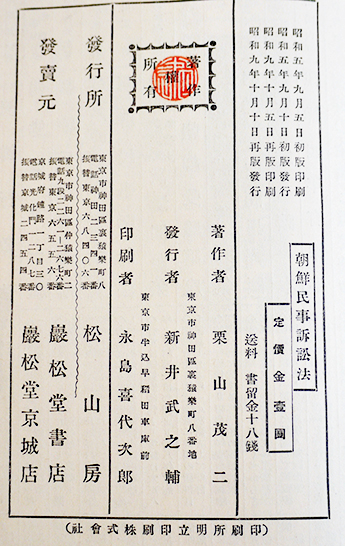 朝鮮民事訴訟法
定價金壹圓
送料 書留金十八錢
昭和九年九月五日初版印刷
昭和五年九月十日初版發行
昭和九年十月五日再版印刷
昭和九年十月十日再版發行
著作
權
所有
著作者 栗山茂二
東京市神田區裏猿樂町八番地
發行者 新井武之輔
東京市牛込早稻田車庫前
印刷者 永島喜代次郎
發行所 松山房
東京市神田區裏猿樂町八
電話神田二三四〇番
振替東京六八四〇六番
發賣元
東京市神田區仲猿樂町二
電話九段二二六一-二六七六番
振替東京六五五六番
巖松堂書店
京城府鍾路一丁目三〇
電話光化門二八七番
振替京城二四五番
巖松堂京城店
(印刷所明立印刷株式會社)